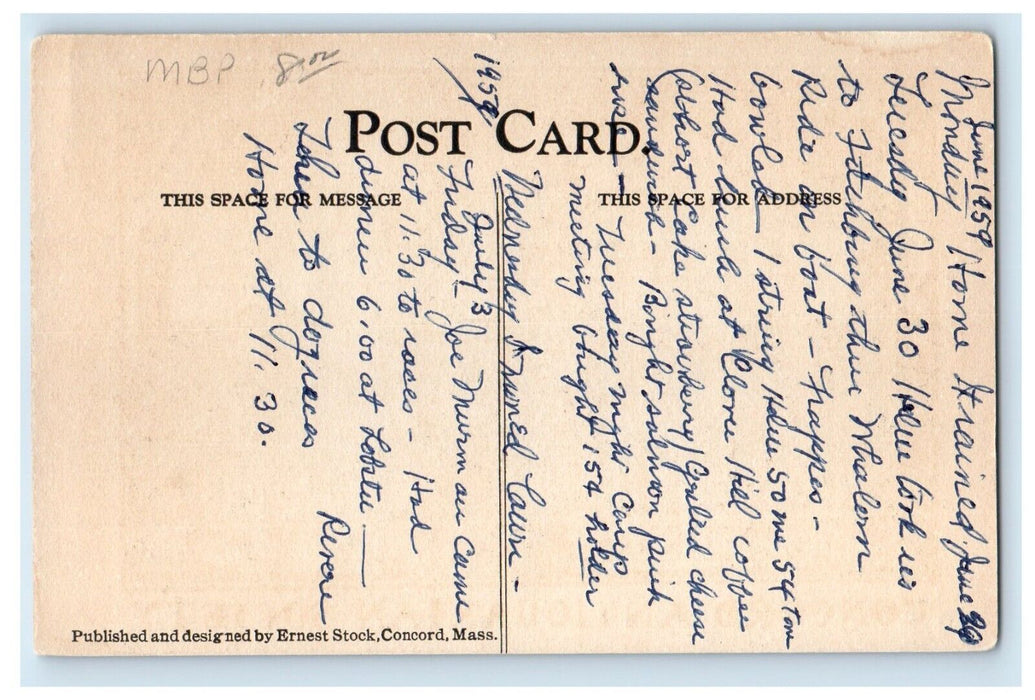 MBP 8.00
POST CARD.
THIS SPACE FOR MESSAGE
THIS SPACE FOR ADDRESS
June 1959
Monday Home It rained June 29
Tuesday June 30 Helen took us
to Fitchburg thru Whalom
Ride on boat - Frappes -
bowled 1 string Helen 50 me 54 Tom
Had lunch at Clover Hill coffee
(short cake strawberry) Grilled cheese
sandwich - Bought salmon pink
Tuesday night Camp
meeting bought 15¢ holder
Wednesday Trimed lawn -
1959
July 3
Friday - Joe Murman came
at 11:30 to races - Had
dinner 6:00 at Lobster
Then to dog races Revere
Home at 11.30.
Published and designed by Ernest Stock, Concord, Mass.